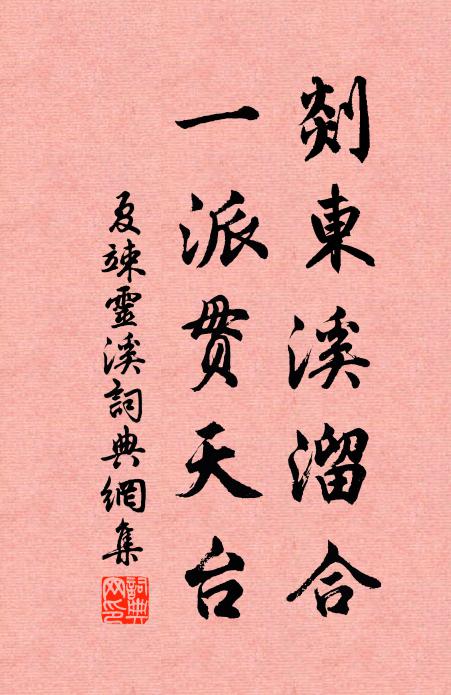 剡東溪溜合
一派贯天台
夏竦靈溪詞典網集
詞典网印